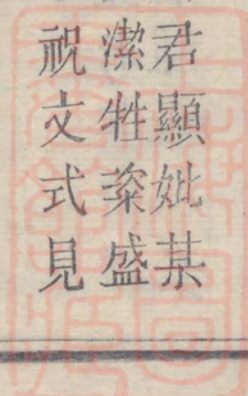 君顯妣某
潔牲粢盛
祝文式見